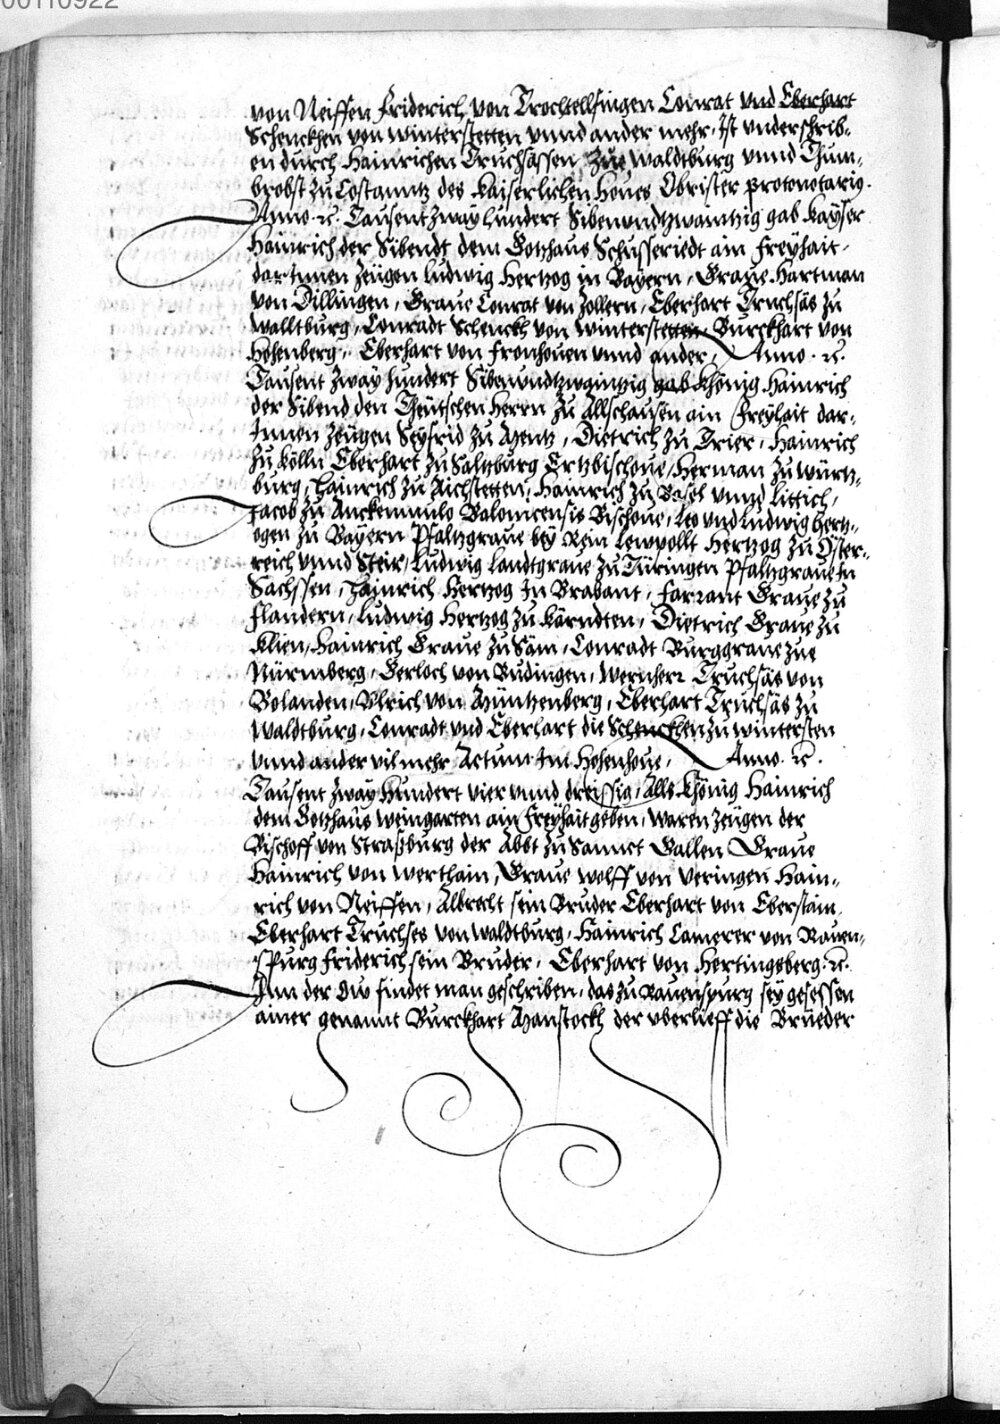 00110922
von Neiffen Friderich von Trochtellfingen Conrat vnd Eberhart
Schenckhen von Winterstetten vnnd ander mehr, Ist vnderschrib-
en durch Hainrichen Truchsässen Zue Waldtburg vnnd Thum-
brobst zu Costanntz des Kaiserlichen Houes Obrister protonotarig.
Anno. ꝛc. Tausent Zway hundert Sibenundtzwantzig gab Kayser
Hainrich der Sibendt dem Gotzhaus Schusseriedt ain Freyhait,
darInnen Zeugen Ludwig Hertzog in Bayern, Graue Hartman
von Dillingen, Graue Conrat von Zollern, Eberhart Truchsäs zu
Walltburg, Conradt Schenckh von Winterstetten, Burckhart von
Hohenberg, Eberhart von Fronhouen vnnd ander, Anno. ꝛc.
Tausent Zway hundert Sibenundtzwaintzig gab Khönig Hainrich
der Sibend den Theutschen Herrn zu Allschausen ain Freyhait dar-
Innen Zeugen Seyfrid zu Mentz, Dietrich zu Trier, Hainrich
zu Kölln Eberhart zu Saltzburg Ertzbischoue, Herman zu Würtz-
burg, Hainrich zu Aichstetten, Hainrich zu Basel vnnd Littich,
Jacob zu Bischoue, Leo vnd Ludwig Hertz-
ogen zu Bayern Pfaltzgraue bey Rein Lewpollt Hertzog zu Öster-
reich vnnd Steir, Ludwig Landtgraue zu Türingen Pfaltzgraue In
Sachssen, Hainrich Hertzog In Brabant, Farrant Graue zu
Flandern, Ludwig Hertzog zu Kärndten, Dietrich Graue zu
Klien, Hainrich Graue zu Sain, Conradt Burggraue zue
Nürmberg, Gerloch von Budingen, Wernherr Truchsäs von
Bolanden, Vlrich von Müntzenberg, Eberhart Truchsäs zu
Waldtburg, Conradt vnd Eberhart die Schenckhen zu Wintersten
vnnd ander vil mehr Actum Im Hohenhoue, Anno. ꝛc.
Tausent Zway Hundert vier vnnd dreissig, Alls Khönig Hainrich
dem Gotzhaus Weingarten ain Freyhait geben, Waren Zeugen der
Bischoff von Straßburg der Abbt zu Sannct Gallen Graue
Hainrich von Werthain, Graue Wolff von Veringen Hain-
rich von Neiffen, Albrecht sein Bruder Eberhart von Eberstain,
Eberhart Truchses von Waldtburg, Hainrich Camerer von Rauen-
spurg Friderich sein Bruder, Eberhart von Hertingsberg. ꝛc.
Inn der Ow findet man geschriben, das zu Rauenspurg sey gesessen
ainer genannt Burckhart Manstockh der vberlieff die Brueder